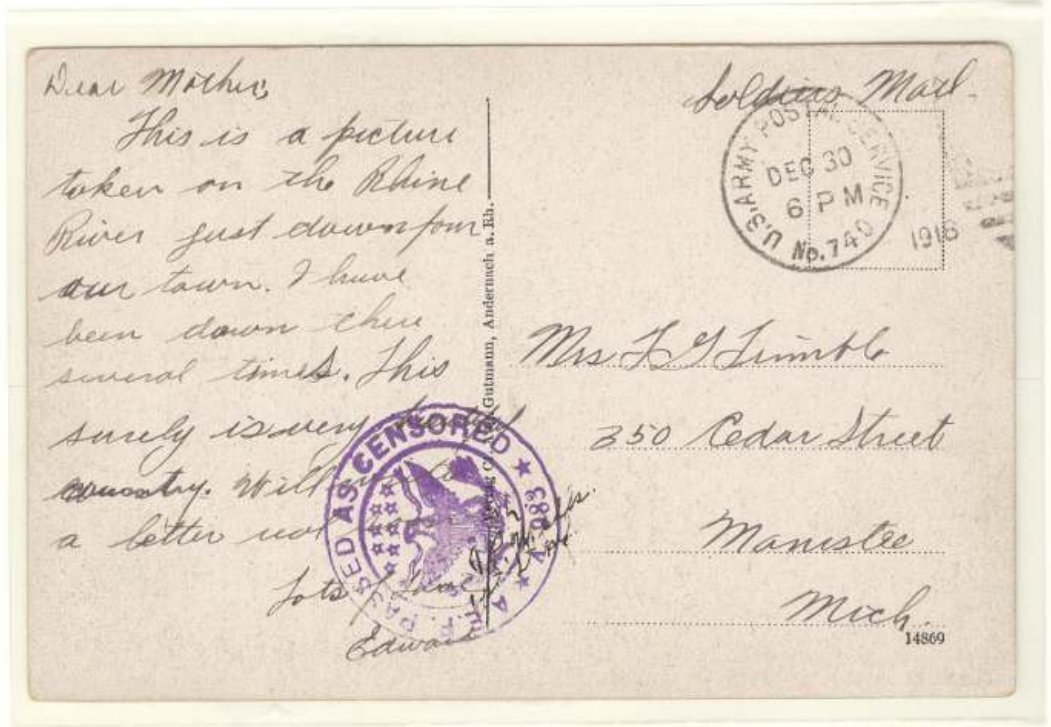 Dear Mother,
This is a picture
taken on the Rhine
River just down from
our town. I have
been down there
several times. This
surely is very
country. Will
a letter
Lots of Love
Edward
Gutmann, Andernach a. Rh.
A. E. F. PASSED AS CENSORED ★ A
Soldiers Mail.
U.S. ARMY POSTAL SERVICE
DEC 30
6 PM
No. 740
1918
Mrs F G Trimble
350 Cedar Street
Manistee
Mich.
14869